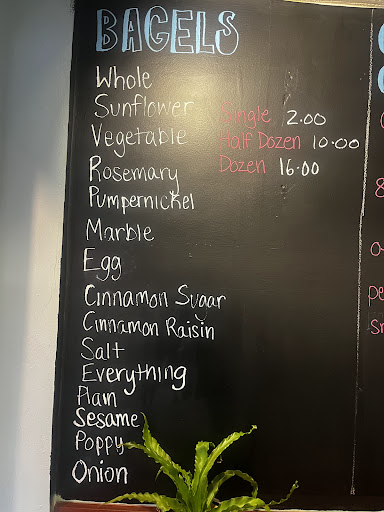 BAGELS
Whole
Sunflower
Vegetable
Rosemary
Pumpernickel
Marble
Egg
Cinnamon Sugar
Cinnamon Raisin
Salt
Everything
Plain
Sesame
Poppy
Onion
Single 2.00
Half Dozen 10.00
Dozen 16.00